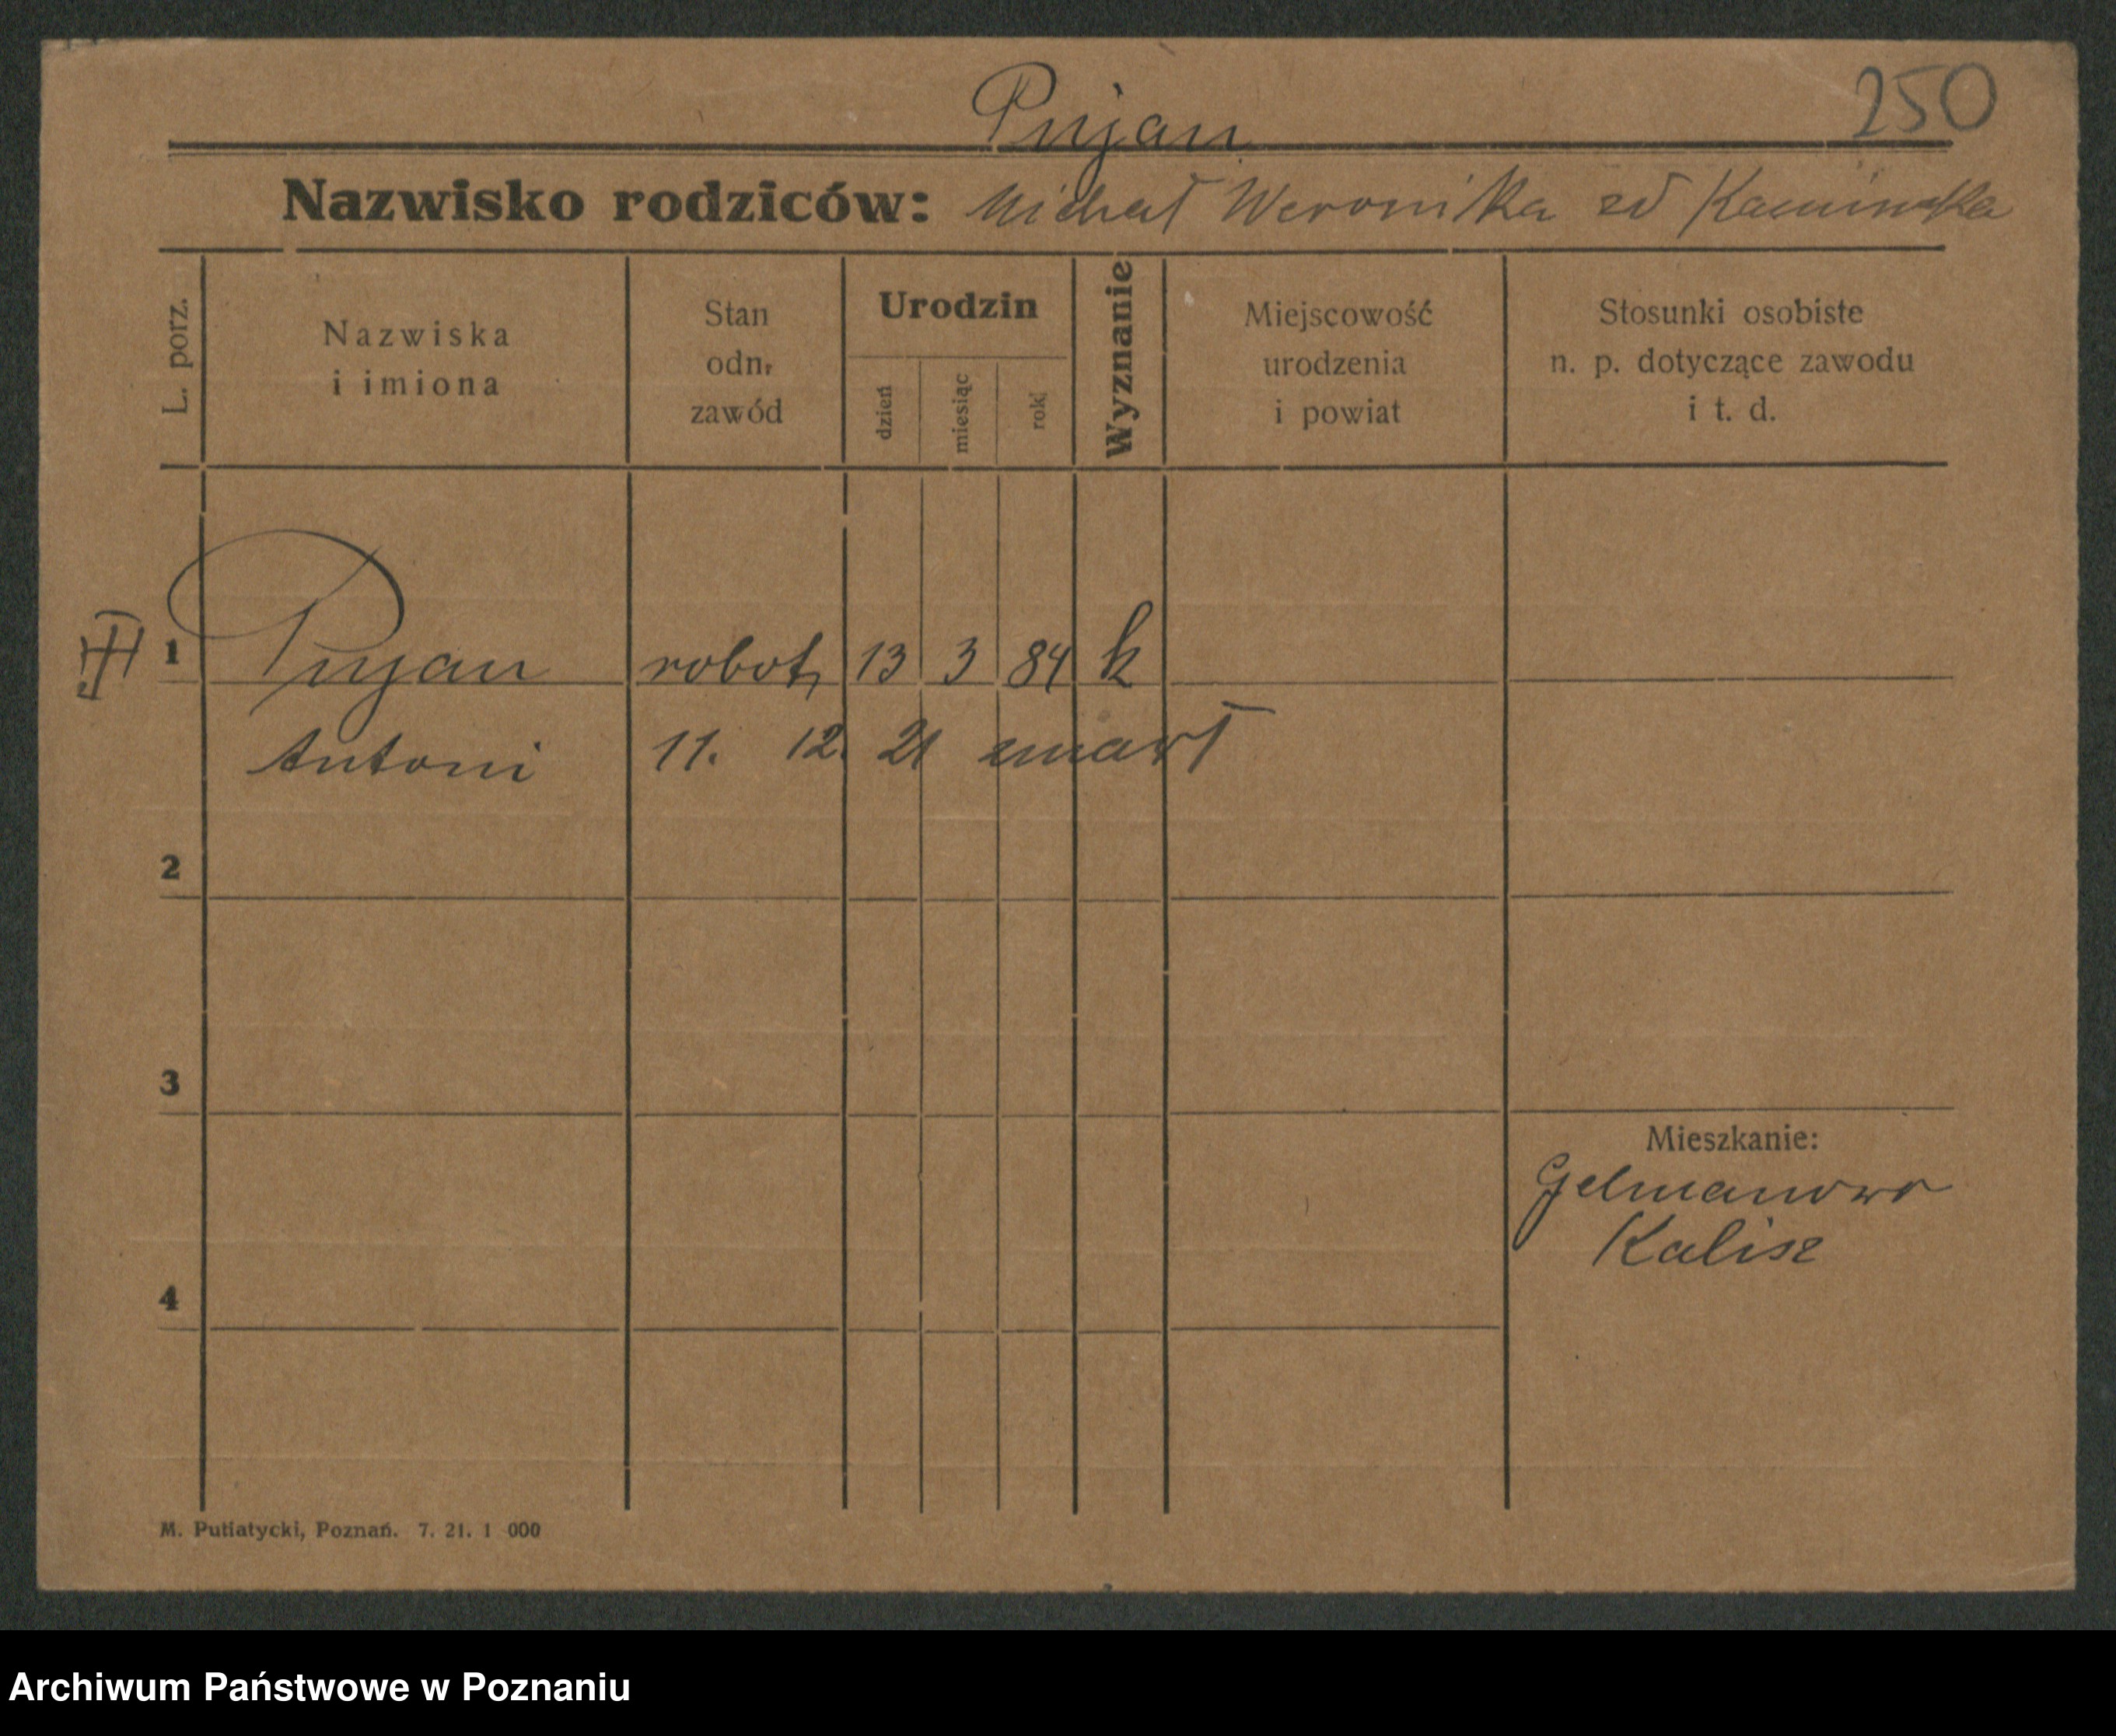 250
Pujan
Nazwisko rodziców: Michał Weronika zd Kamińska
L. porz.
Nazwiska
i imiona
Stan
odn.
zawód
Urodzin
dzień
miesiąc
rok
Wyznanie
Miejscowość
urodzenia
i powiat
Stosunki osobiste
n. p. dotyczące zawodu
i t. d.
1 Pujan robotn 13 3 84 k
Antoni 11. 12. 21 zmarł
2
3
Mieszkanie:
Gelmanowo
Kalisz
4
M. Putiatycki, Poznań. 7. 21. 1 000
Archiwum Państwowe w Poznaniu